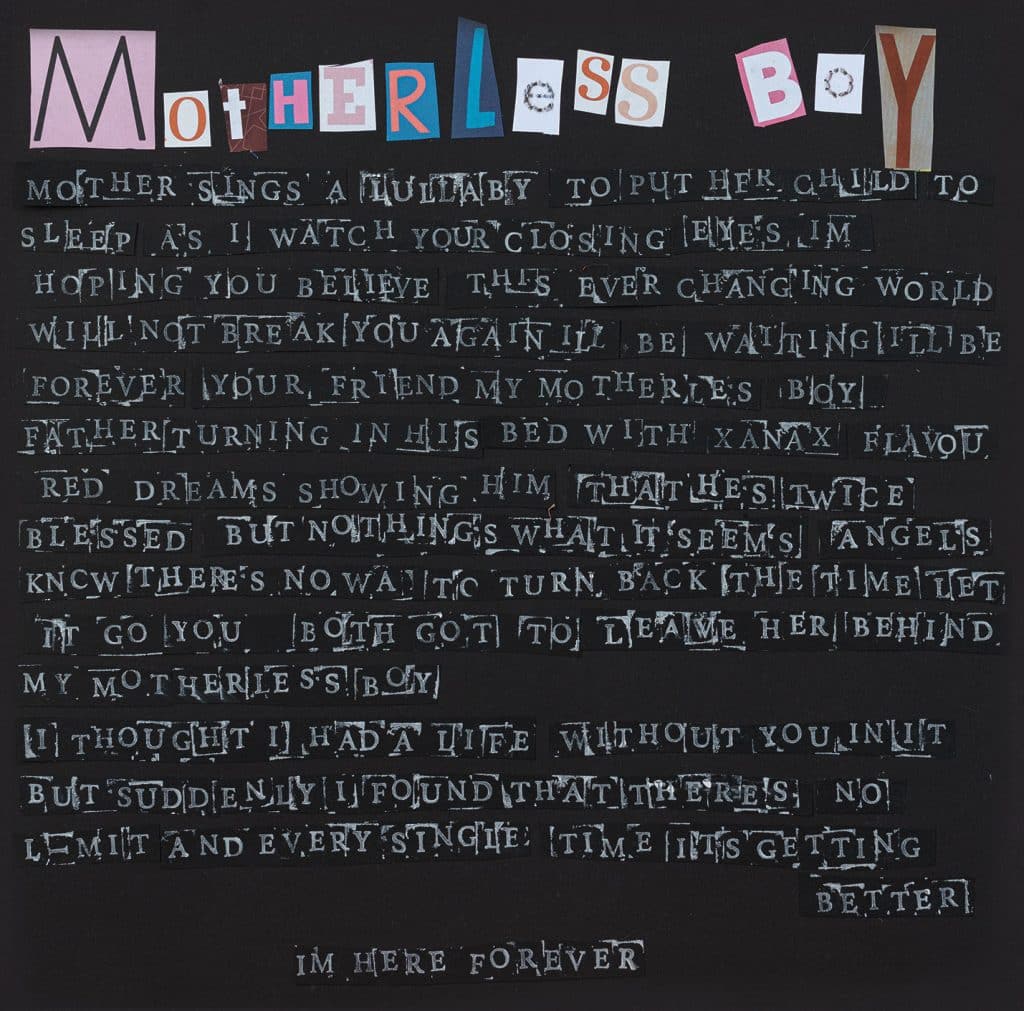 MOtHERLeSS BoY
MOTHER SINGS A LULLABY TO PUT HER CHILD TO
SLEEP AS I WATCH YOUR CLOSING EYES IM
HOPING YOU BELIEVE THIS EVER CHANGING WORLD
WILL NOT BREAK YOU AGAIN ILL BE WAITING I'LL BE
FOREVER YOUR FRIEND MY MOTHERLES BOY
FATHER TURNING IN HIS BED WITH XANAX FLAVOU
RED DREAMS SHOWING HIM THAT HES TWICE
BLESSED BUT NOTHINGS WHAT IT SEEMS ANGELS
KNOW THERE'S NO WA TO TURN BACK THE TIME LET
IT GO YOU BOTH GOT TO LEAVE HER BEHIND
MY MOTHERLESS BOY
I THOUGHT I HAD A LIFE WITHOUT YOU IN IT
BUT SUDDENLY I FOUND THAT THERES NO
LIMIT AND EVERY SINGLE TIME ITS GETTING
BETTER
IM HERE FOREVER